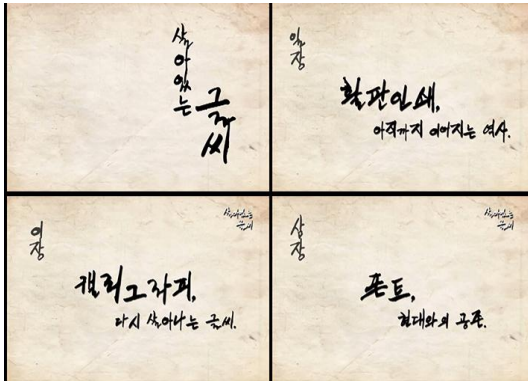 살아있는
글씨
일장
활판인쇄,
아직까지 이어지는 역사.
살아있는
글씨
이장
캘리그라피,
다시 살아나는 글씨.
살아있는
글씨
삼장
폰트,
현대와의 공존.